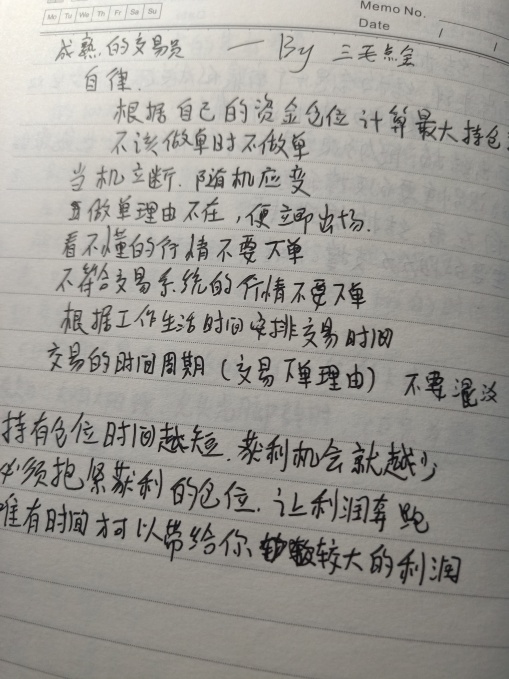 Mo Tu We Th Fr Sa Su
Memo No.
Date / /
成熟的交易员 — By 三毛点金
自律.
根据自己的资金仓位计算最大持仓
不该做单时不做单
当机立断.随机应变
当做单理由不在,便立即出场.
看不懂的行情不要下单
不符合交易系统的行情不要下单
根据工作生活时间安排交易时间
交易的时间周期(交易下单理由) 不要混淆
持有仓位时间越短.获利机会就越少
必须抱紧获利的仓位.让利润奔跑
唯有时间才可以带给你较大的利润